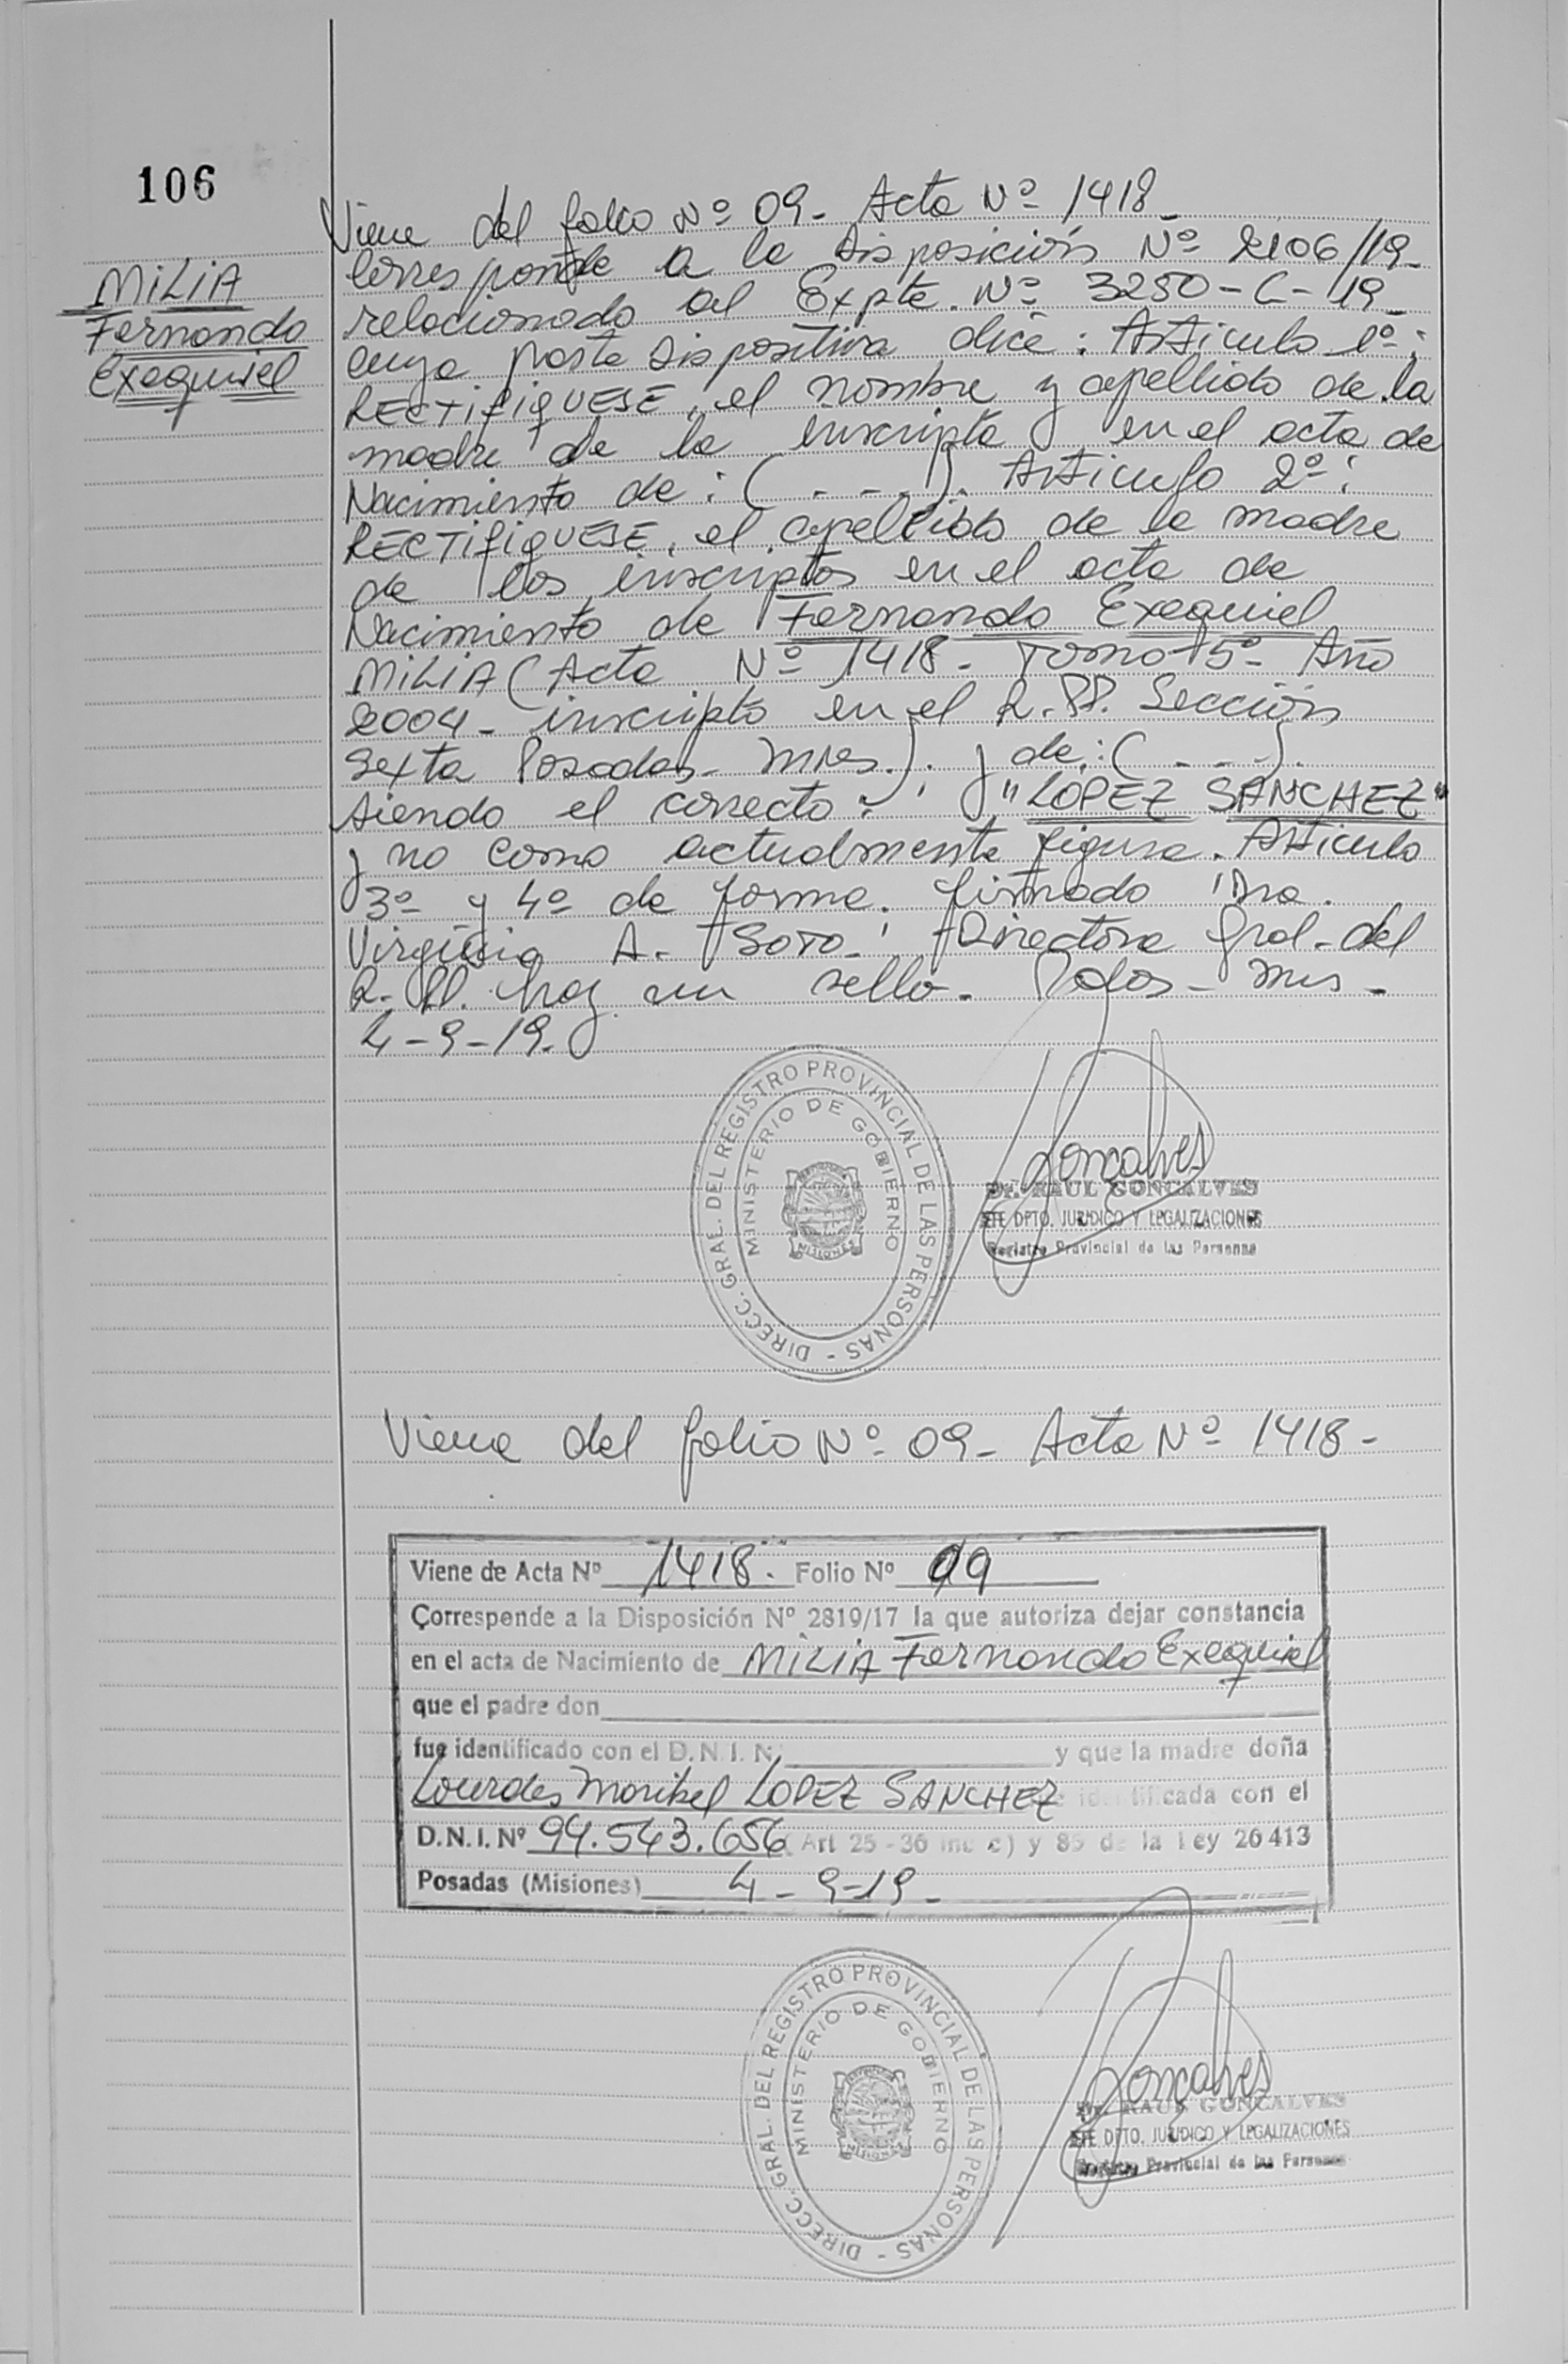 106
MILIA
Fernando
Exequiel
Viene del folio Nº 09- Acta Nº 1418-
Corresponde a la Disposición Nº 2106/19-
relacionado al Expte. Nº 3250-L-19-
cuya parte dispositiva dice: Articulo 1º:
RECTIFIQUESE, el nombre y apellido de la
madre de la inscripta en el acta de
Nacimiento de: ( - - - ). Articulo 2º:
RECTIFIQUESE, el apellido de la madre
de los inscriptos en el acta de
Nacimiento de Fernando Exequiel
MILIA (Acta Nº 1418- Tomo 5º- Año
2004- inscripto en el R.PP. Sección
Sexta Posadas- Mnes.). y de: ( - - - ).
siendo el correcto: "LOPEZ SANCHEZ"
y no como actualmente figura. Articulo
3º y 4º de forma. firmado Dra.
Virginia A. Soto- Directora Gral- del
R. PP. hay un sello- Pdas- Mns-
4-9-19-
DIRECC. GRAL. DEL REGISTRO PROVINCIAL DE LAS PERSONAS -
MINISTERIO DE GOBIERNO
MISIONES
Goncalves
Dr. RAUL GONCALVES
JEFE DPTO. JURIDICO Y LEGALIZACIONES
Registro Provincial de las Personas
Viene del folio Nº 09- Acta Nº 1418-
Viene de Acta Nº 1418- Folio Nº 09
Corresponde a la Disposición Nº 2819/17 la que autoriza dejar constancia
en el acta de Nacimiento de MILIA Fernando Exequiel
que el padre don
fue identificado con el D.N.I. N. y que la madre doña
Lourdes Maribel LOPEZ SANCHEZ identificada con el
D.N.I. Nº 94.543.656 (Art 25 - 36 inc c) y 85 de la Ley 26 413
Posadas (Misiones) 4-9-19-
DIRECC. GRAL. DEL REGISTRO PROVINCIAL DE LAS PERSONAS -
MINISTERIO DE GOBIERNO
MISIONES
Goncalves
Dr. RAUL GONCALVES
JEFE DPTO. JURIDICO Y LEGALIZACIONES
Registro Provincial de las Personas